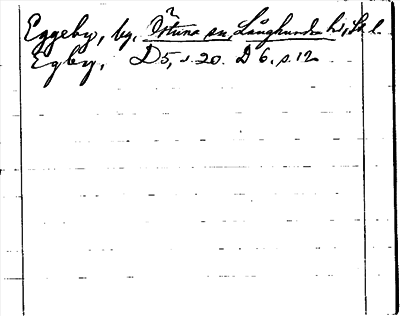 ?
Eggeby, by, Östuna sn, Långhundra hd, St. l.
Egby, D 5, s. 20. D 6. s. 12